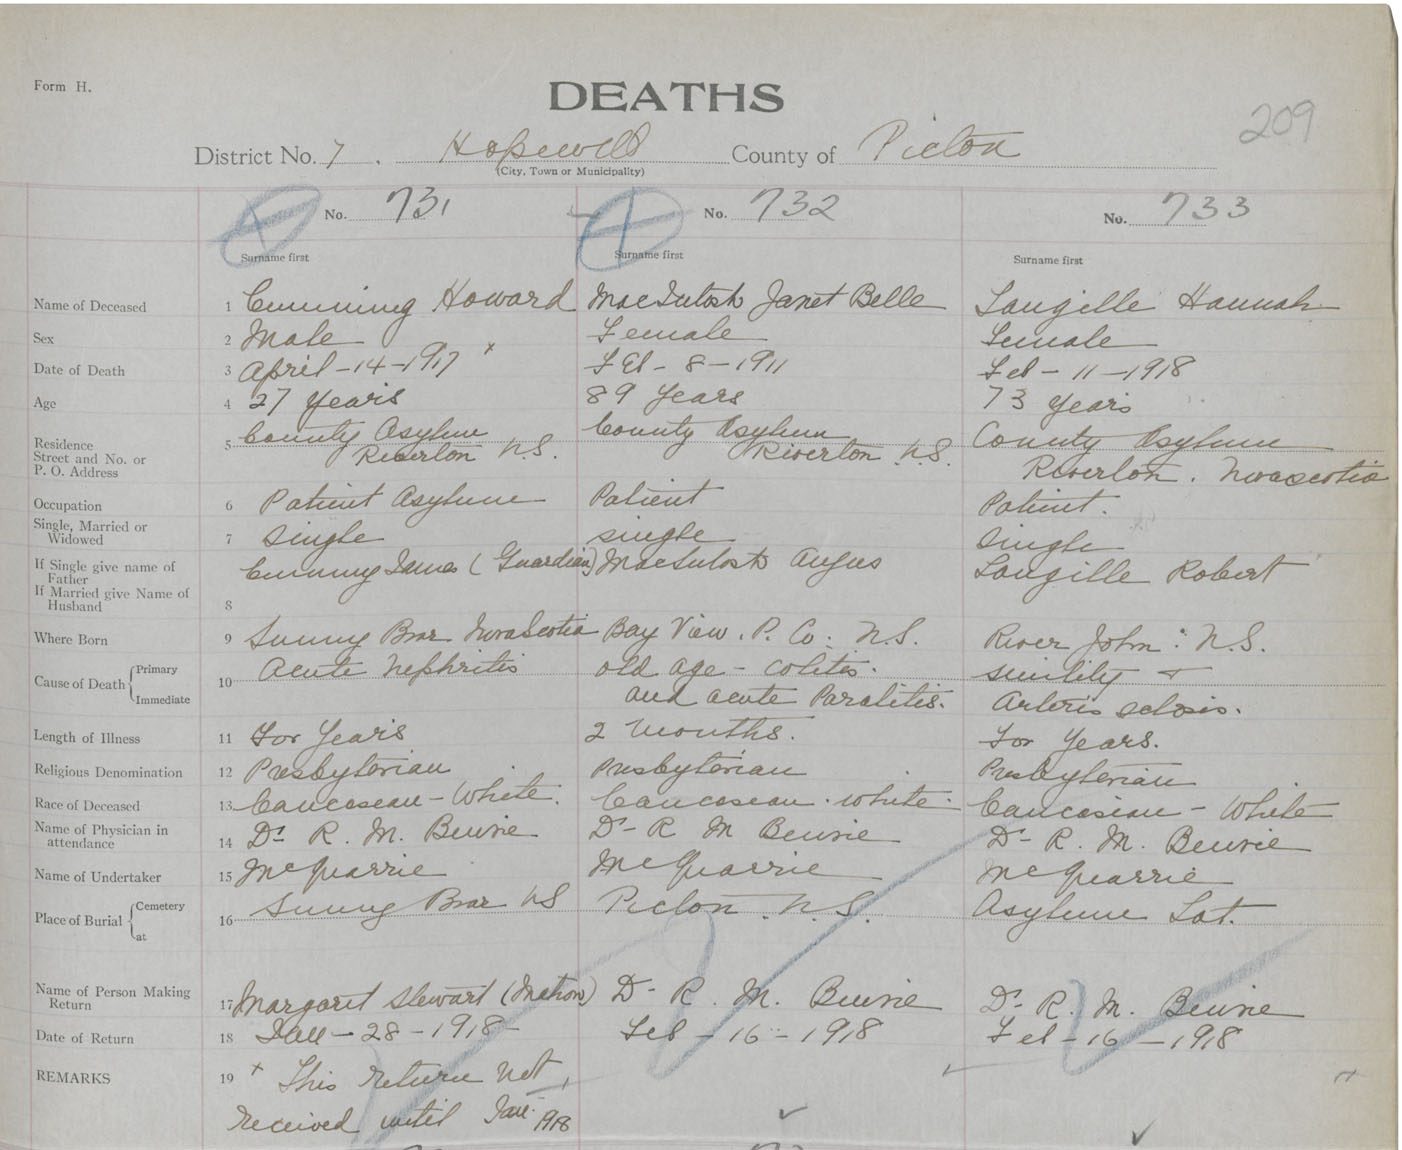 Form H.
DEATHS
209
District No. 7. Hopewell County of Pictou
(City, Town or Municipality)
No. 731 No. 732 No. 733
Surname first Surname first Surname first
Name of Deceased 1 Cumming Howard MacIntosh Janet Belle Langille Hannah
Sex 2 Male Female Female
Date of Death 3 April-14-1917 x Feb-8-1911 Feb-11-1918
Age 4 27 Years 89 Years 73 Years
Residence Street and No. or P. O. Address 5 County Asylum County Asylum County Asylum
Riverton N.S. Riverton N.S. Riverton. Novascotia
Occupation 6 Patient Asylum Patient Patient.
Single, Married or Widowed 7 Single single Single
If Single give name of Father Cumming James (Guardian) MacIntosh Angus Langille Robert
If Married give Name of Husband 8
Where Born 9 Sunny Brae NovaScotia Bay View. P. Co. N.S. River John: N.S.
Cause of Death Primary 10 Acute Nephritis old age - colitis. senility +
Immediate and acute Paralitis. Arteris sclosis.
Length of Illness 11 For Years 2 months. For Years.
Religious Denomination 12 Presbyterian Presbyterian Presbyterian
Race of Deceased 13 Caucasean - White. Caucasean. white. Caucasian - White
Name of Physician in attendance 14 Dr. R. M. Benvie Dr- R M Benvie Dr- R. M. Benvie
Name of Undertaker 15 McQuarrie McQuarrie McQuarrie
Place of Burial Cemetery at 16 Sunny Brae NS Pictou. N.S. Asylum Lot.
Name of Person Making Return 17 Margaret Stewart (Matron) Dr- R. M. Benvie Dr- R. M. Benvie
Date of Return 18 Jan-28-1918- Feb-16-1918 Feb-16-1918
REMARKS 19 x This return not
received until Jan. 1918